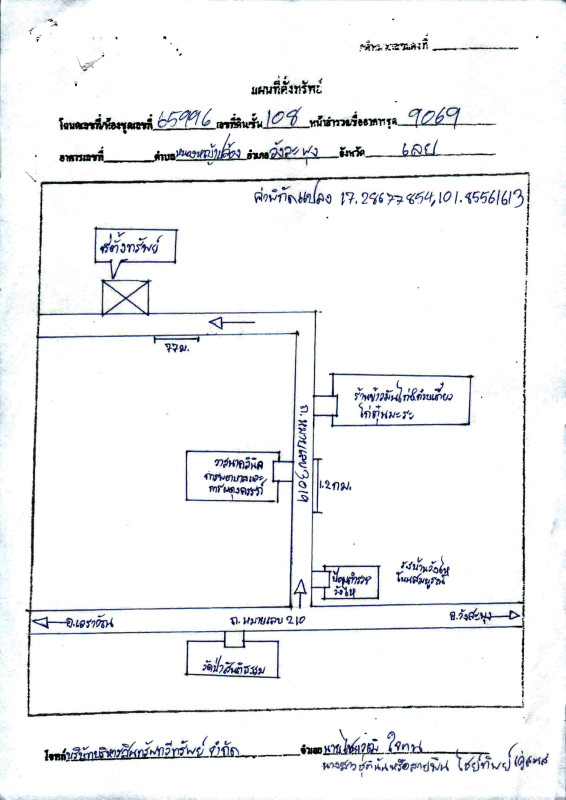 แผนที่ตั้งทรัพย์
โฉนดเลขที่/ห้องชุดเลขที่ 65996 เลขที่ดิน/ชั้น 108 หน้าสำรวจ/ชื่ออาคารชุด 9069
อาคารเลขที่ ตำบล หนองหญ้าปล้อง อำเภอ วังสะพุง จังหวัด เลย
ค่าพิกัดแปลง 17.28677854,101.85561613
ที่ตั้งทรัพย์
77ม.
ร้านข้าวมันไก่&ก๋วยเตี๋ยว
ไก่ตุ๋นมะระ
ถ.หมายเลข 3019
วาสนาคลินิค
การพยาบาลและ
การผดุงครรภ์
1.2กม.
ป้อมตำรวจ
วังไห
บ้านวังไห
โนนสมบูรณ์
อ.เอราวัณ
ถ.หมายเลข 210
อ.วังสะพุง
วัดป่าสันติธรรม
โจทก์ บริษัทบริหารสินทรัพย์ทวีทรัพย์ จำกัด จำเลย ใจทน
นางสาว ไชยทิพย์